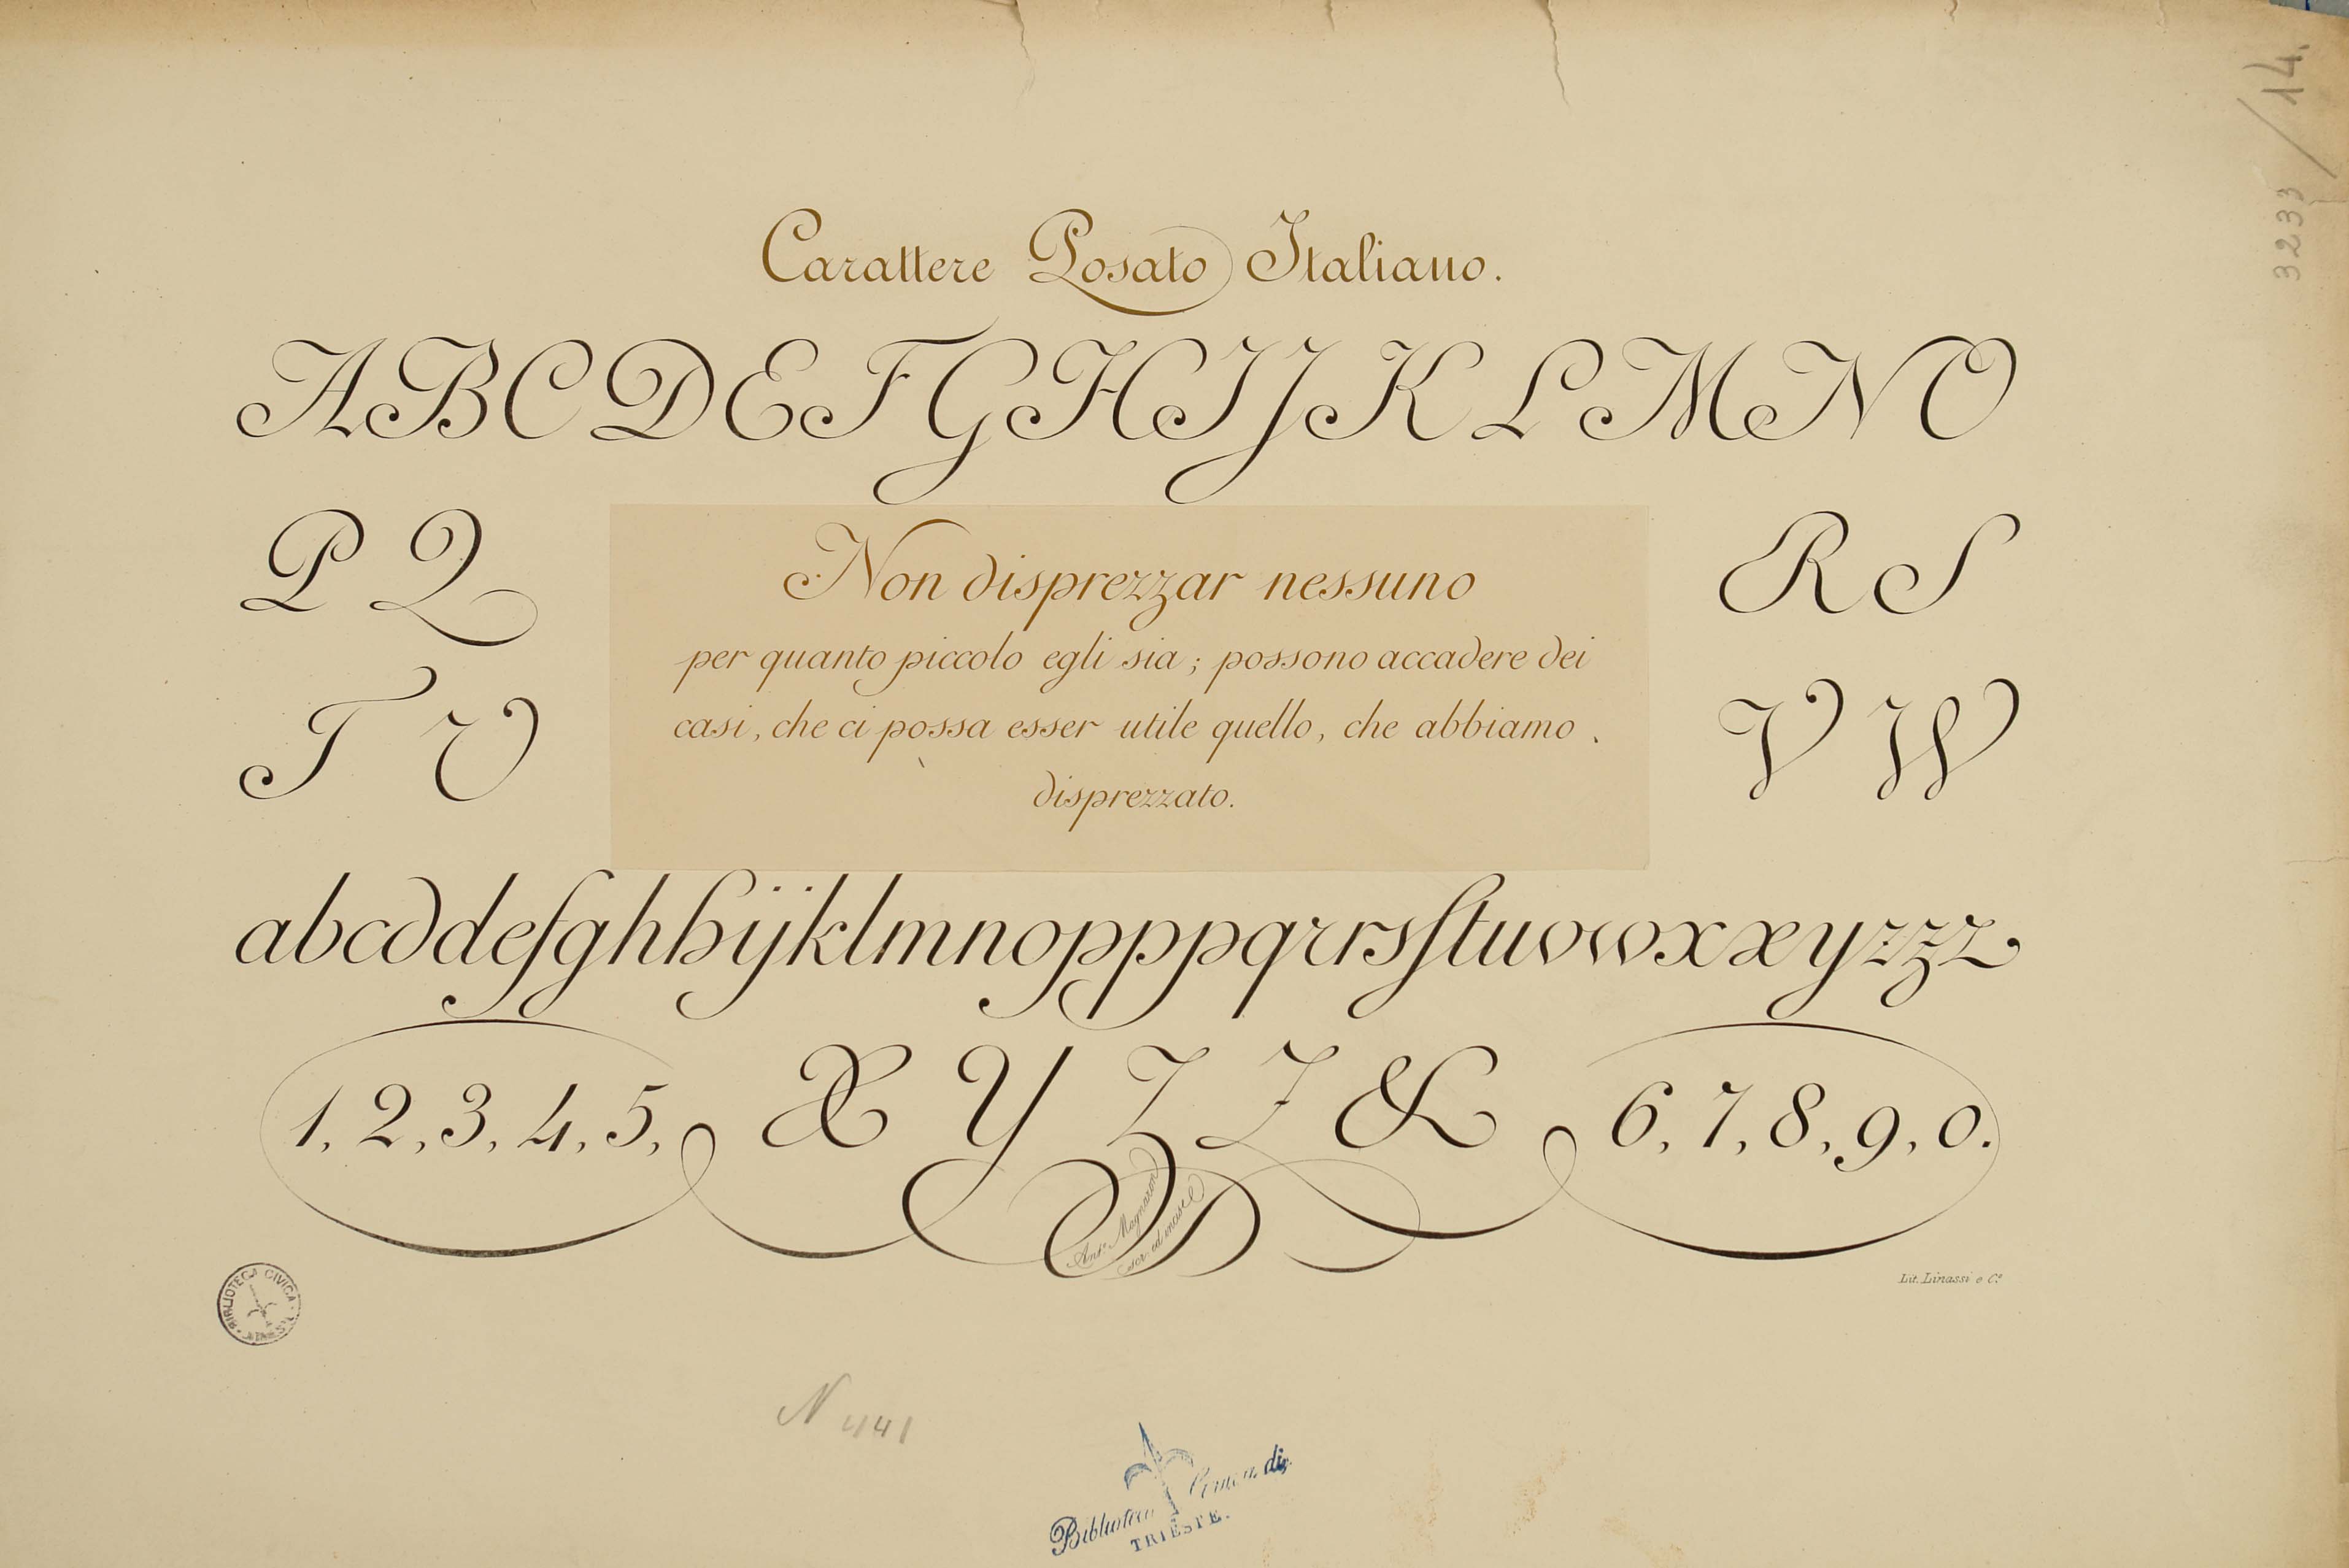 3233/14.
Carattere Posato Italiano.
A B C D E F G H I J K L M N O
P Q
R S
Non disprezzar nessuno
per quanto piccolo egli sia; possono accadere dei
casi, che ci possa esser utile quello, che abbiamo
disprezzato.
T U
V W
a b c d d e f g h h i j k l m n o p p p q r r s s t u v w x x y z z z
1, 2, 3, 4, 5,
X Y Z Z &
6, 7, 8, 9, 0.
Ant.
scr. ed incise
Lit. Linassi e C.º
BIBLIOTECA CIVICA
N 441
Biblioteca di
TRIESTE.